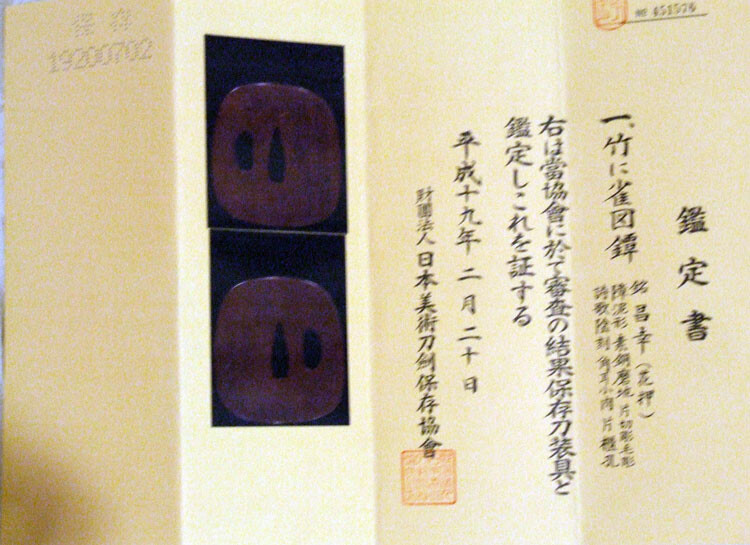 451576
鑑定書
一、竹に雀図鐔
銘 昌幸(花押)
障泥形 素銅磨地 片切彫毛彫
詩歌陰刻 角耳小肉 片櫃孔
右は當協會に於て審査の結果保存刀装具と
鑑定しこれを証する
平成十九年二月二十日
財團法人 日本美術刀劍保存協會
保存
19200702